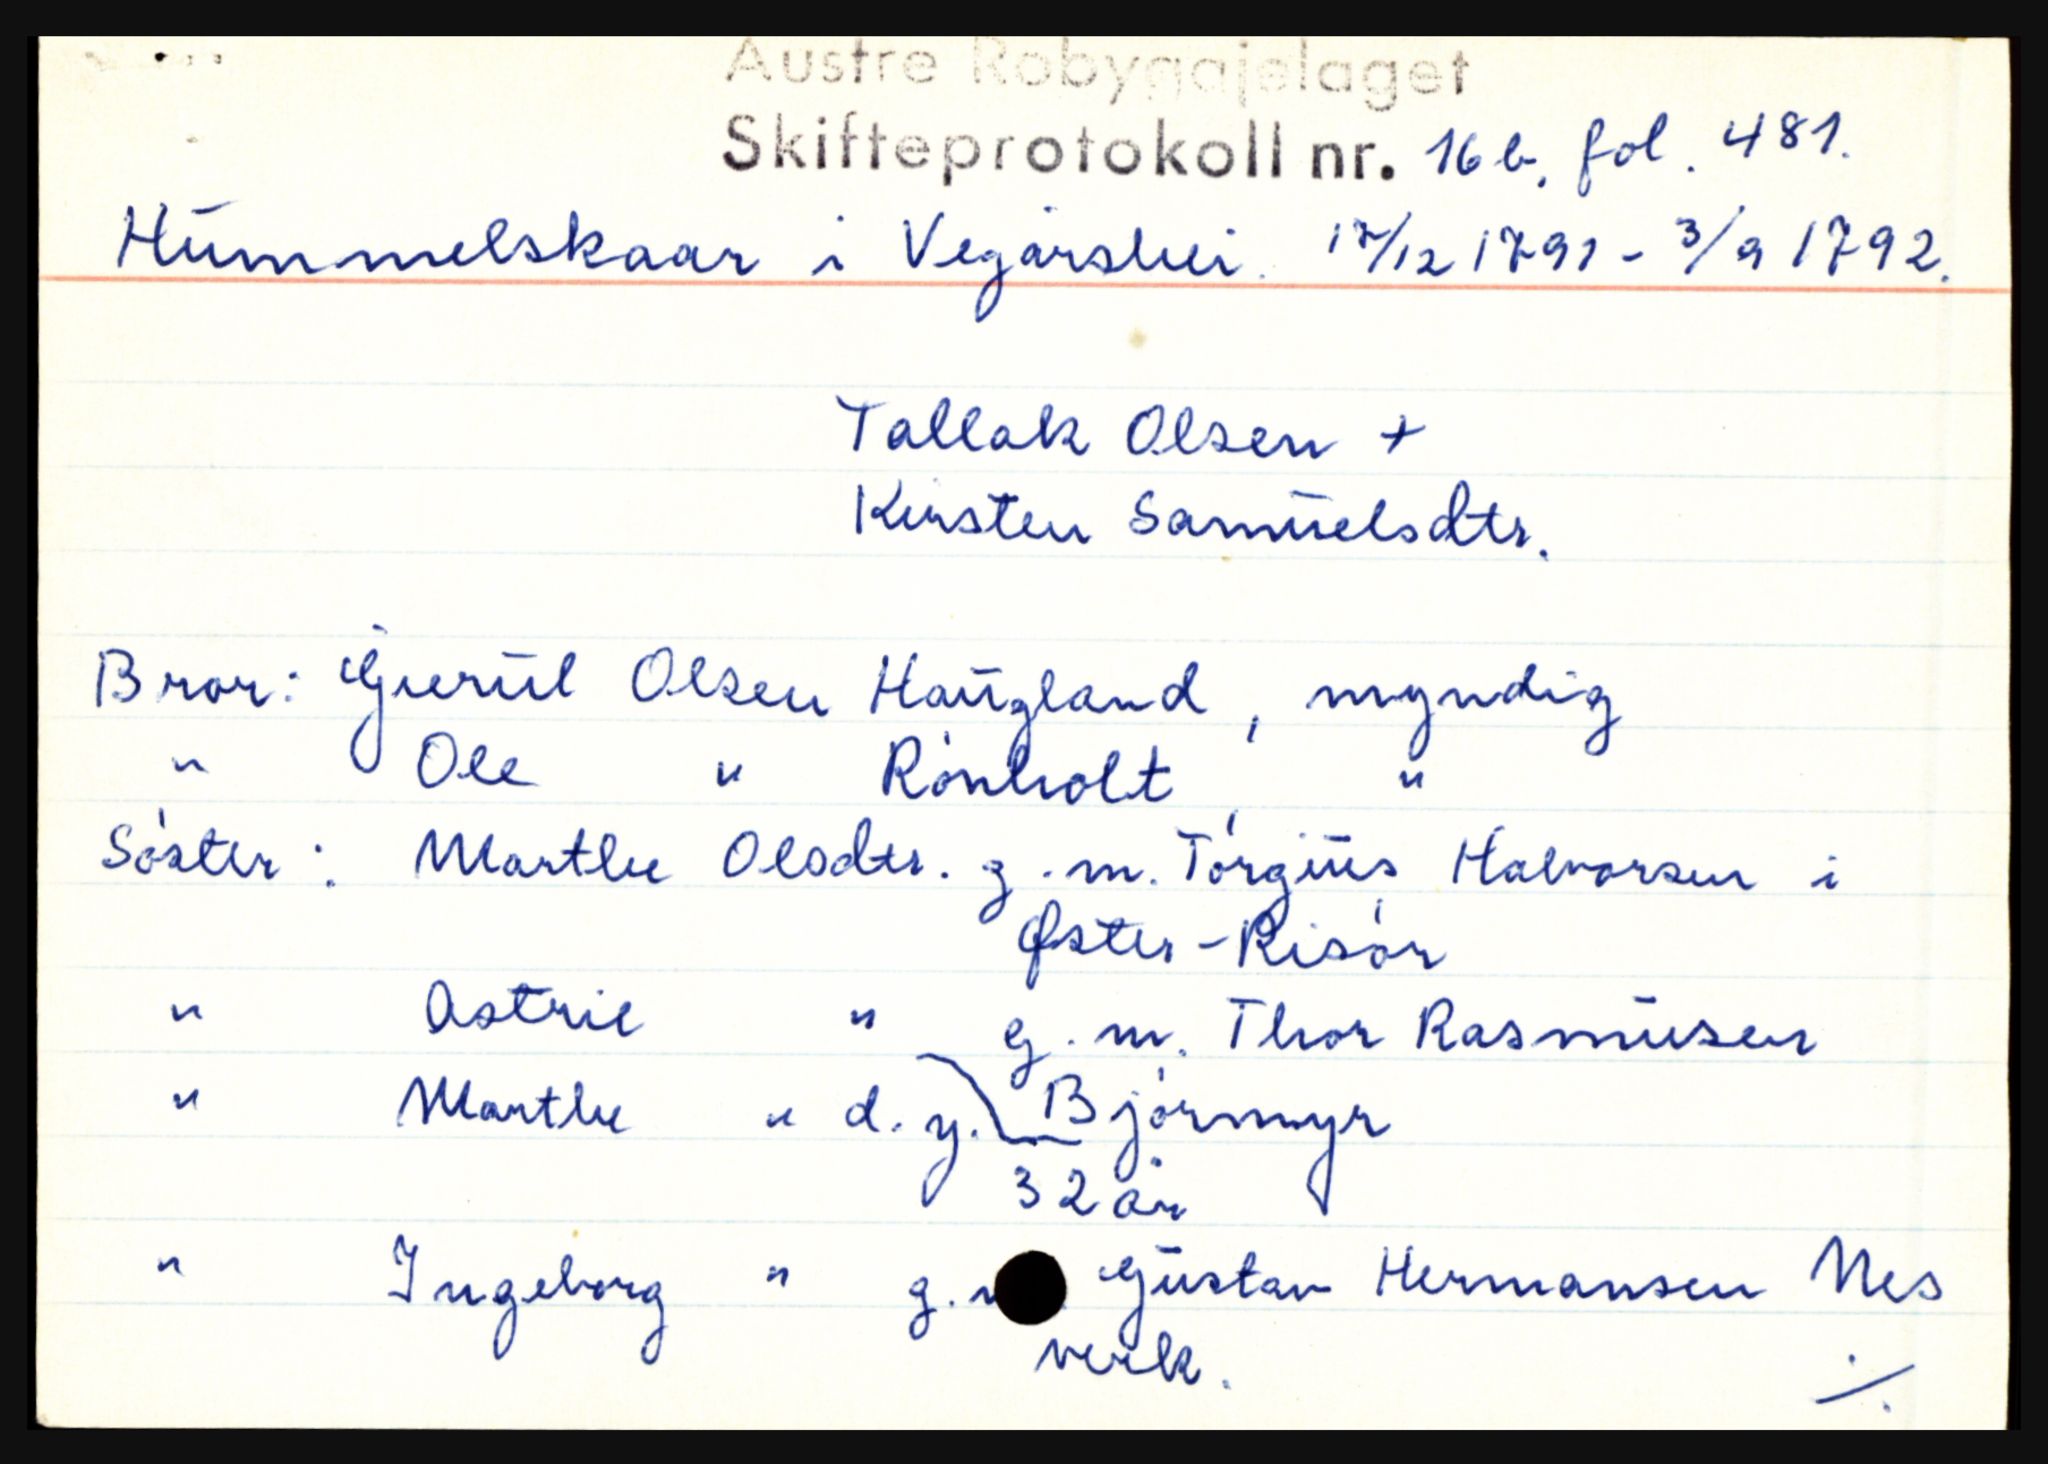 Austre Robyggjelaget
Skifteprotokoll nr. 16 b, fol. 481.
Hummelskaar i Vegårshei. 17/12 1791 - 3/9 1792.
Tallak Olsen +
Kirsten Samuelsdtr.
Bror: Gjerul Olsen Haugland, myndig
" Ole " Rónholt, "
Sóster: Marthe Olsdtr. g.m. Tórgius Halvorsen i
Øster-Risór
" Astrie " g.m. Thor Rasmusen
" Marthe " d.y. Bjórmyr
32 år
" Ingeborg " g.m. Gustav Hermansen Nes
verk.
./.